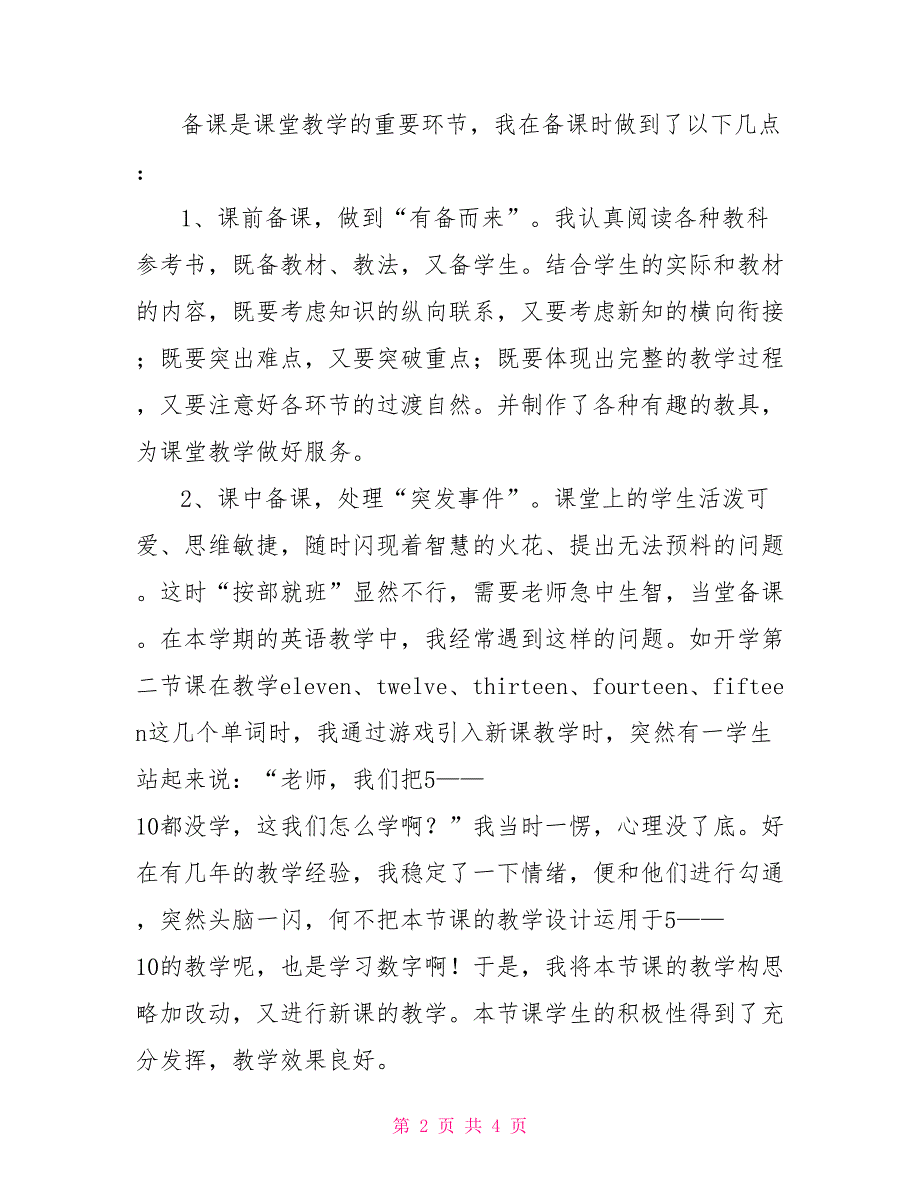 备课是课堂教学的重要环节，我在备课时做到了以下几点
：
1、课前备课，做到“有备而来”。我认真阅读各种教科
参考书，既备教材、教法，又备学生。结合学生的实际和教材
的内容，既要考虑知识的纵向联系，又要考虑新知的横向衔接
；既要突出难点，又要突破重点；既要体现出完整的教学过程
，又要注意好各环节的过渡自然。并制作了各种有趣的教具，
为课堂教学做好服务。
2、课中备课，处理“突发事件”。课堂上的学生活泼可
爱、思维敏捷，随时闪现着智慧的火花、提出无法预料的问题
。这时“按部就班”显然不行，需要老师急中生智，当堂备课
。在本学期的英语教学中，我经常遇到这样的问题。如开学第
二节课在教学eleven、twelve、thirteen、fourteen、fiftee
n这几个单词时，我通过游戏引入新课教学时，突然有一学生
站起来说：“老师，我们把5——
10都没学，这我们怎么学啊？”我当时一愣，心理没了底。好
在有几年的教学经验，我稳定了一下情绪，便和他们进行勾通
，突然头脑一闪，何不把本节课的教学设计运用于5——
10的教学呢，也是学习数字啊！于是，我将本节课的教学构思
略加改动，又进行新课的教学。本节课学生的积极性得到了充
分发挥，教学效果良好。
第 2 页 共 4 页